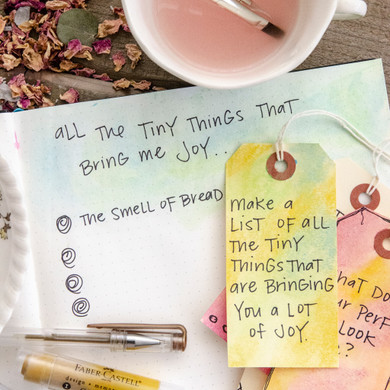 all The Tiny Things That
Bring me Joy...
The smell of Bread
make a
List of all
The Tiny
Things That
are Bringing
You a Lot
of Joy.
what Do
Perf
Look
?
FABER-CASTELL